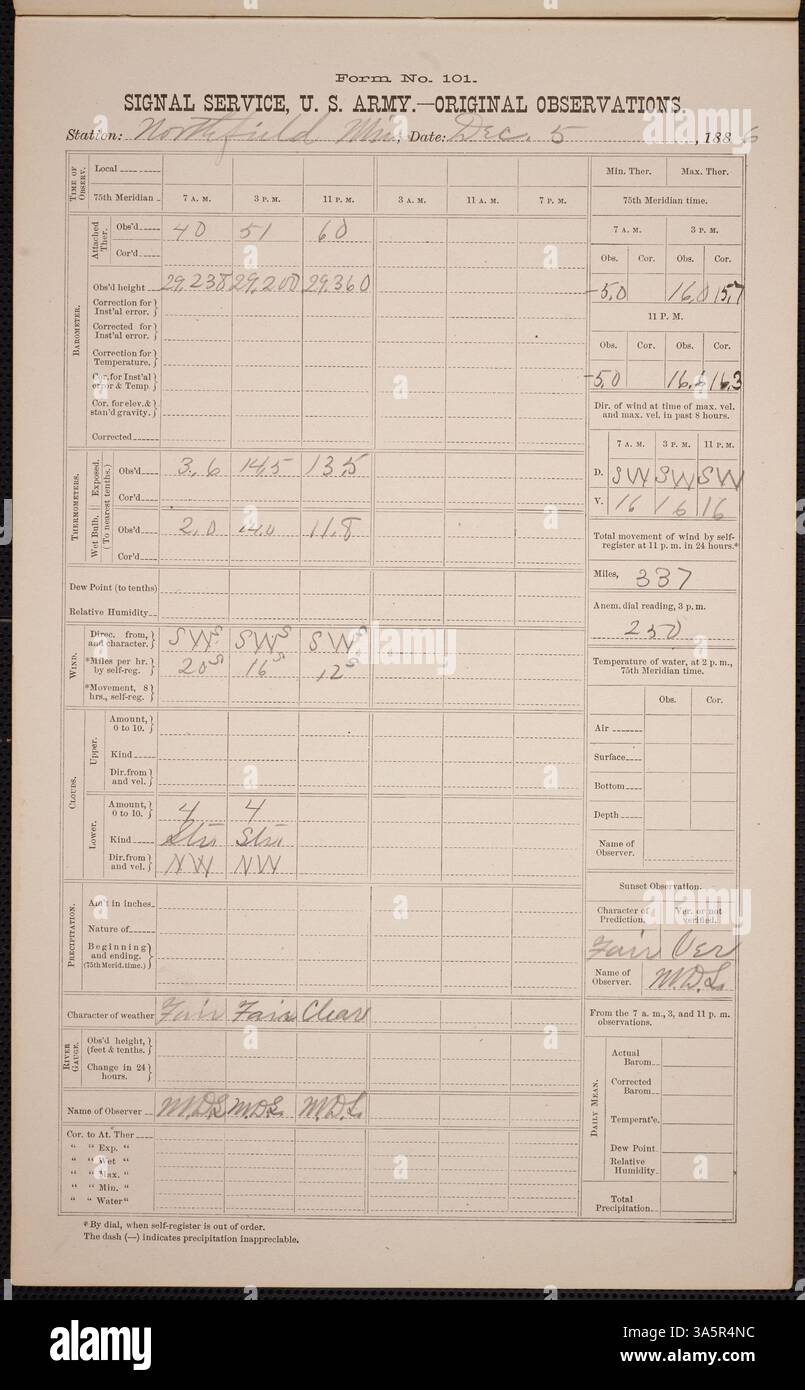 Form No. 101.
SIGNAL SERVICE, U. S. ARMY.—ORIGINAL OBSERVATIONS.
Station: Northfield Min, Date: Dec. 5, 1886
TIME OF OBSERV.
Local
75th Meridian 7 A. M. 3 P. M. 11 P. M. 3 A. M. 11 A. M. 7 P. M.
BAROMETER.
Attached Ther.
Obs'd 40 51 60
Cor'd
Obs'd height 29.238 29.200 29.360
Correction for Inst'al error.
Corrected for Inst'al error.
Correction for Temperature.
Cor. for Inst'al error & Temp.
Cor. for elev. & stan'd gravity.
Corrected
THERMOMETERS.
(To nearest tenths.)
Exposed.
Obs'd 3.6 14.5 13.5
Cor'd
Wet Bulb.
Obs'd 2.0 14.0 11.8
Cor'd
Dew Point (to tenths)
Relative Humidity
WIND.
Direc. from, and character. SW S SW S SW S
*Miles per hr. by self-reg. 20 S 16 S 12 S
*Movement, 8 hrs., self-reg.
CLOUDS.
Upper.
Amount, 0 to 10.
Kind
Dir. from and vel.
Lower.
Amount, 0 to 10. 4 4
Kind
Dir. from and vel. NW NW
PRECIPITATION.
Am't in inches
Nature of
Beginning and ending. (75th Merid. time.)
Character of weather Fair Fair Clear
RIVER GAUGE.
Obs'd height, (feet & tenths.)
Change in 24 hours.
Name of Observer M.D.L. M.D.L. M.D.L.
Cor. to At. Ther
" " Exp. "
" " Wet "
" " Max. "
" " Min. "
" " Water "
* By dial, when self-register is out of order.
The dash (—) indicates precipitation inappreciable.
Min. Ther. Max. Ther.
75th Meridian time.
7 A. M. 3 P. M.
Obs. Cor. Obs. Cor.
-5.0 16.0 15.7
11 P. M.
Obs. Cor. Obs. Cor.
-5.0 16.6 16.3
Dir. of wind at time of max. vel. and max. vel. in past 8 hours.
7 A. M. 3 P. M. 11 P. M.
D. SW SW SW
V. 16 16 16
Total movement of wind by self-register at 11 p. m. in 24 hours.*
Miles, 337
Anem. dial reading, 3 p. m.
250
Temperature of water, at 2 p. m., 75th Meridian time.
Obs. Cor.
Air
Surface
Bottom
Depth
Name of Observer.
Sunset Observation.
Character of Prediction. Ver. or not verified.
Fair Ver
Name of Observer. M.D.L.
From the 7 a. m., 3, and 11 p. m. observations.
DAILY MEAN.
Actual Barom.
Corrected Barom.
Temperat'e.
Dew Point
Relative Humidity.
Total Precipitation
alamy
alamy
Image ID: 3A5R4NC
www.alamy.com